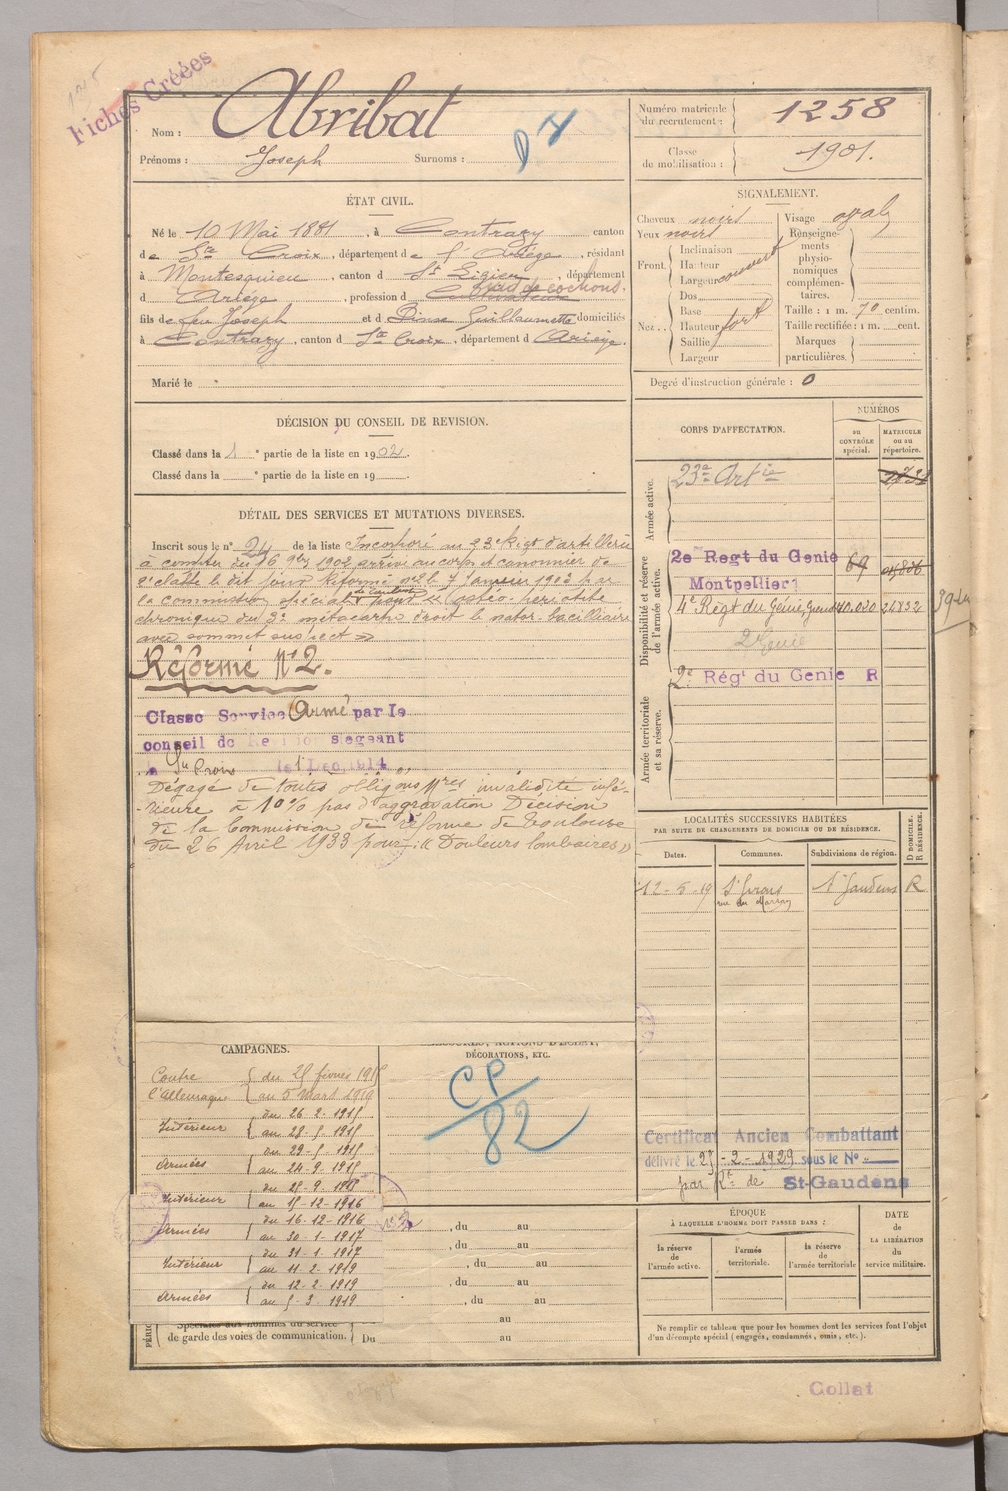 Fiches Créées
Nom : Abribat
Prénoms : Joseph Surnoms :
Numéro matricule du recrutement : 1258
Classe de mobilisation : 1901.
ÉTAT CIVIL.
Né le 10 Mai 1881, à Contrazy canton
de Ste Croix, département de l'Ariège, résidant
à Montesquieu, canton d St Lizier, département
d Ariège, profession d Cultivateur
fils de feu Joseph et d Guillaumette domiciliés
à Contrazy, canton d Ste Croix, département d Ariège.
Marié le
SIGNALEMENT.
Cheveux noirs
Yeux noirs
Front. Inclinaison
Hauteur
Largeur couvert
Nez.. Dos
Base
Hauteur fort
Saillie
Largeur
Visage oval
Renseignements physionomiques complémentaires.
Taille : 1 m. 70 centim.
Taille rectifiée : 1 m. cent.
Marques particulières.
Degré d'instruction générale : 0
DÉCISION DU CONSEIL DE REVISION.
Classé dans la 1e partie de la liste en 1902.
Classé dans la e partie de la liste en 19 .
CORPS D'AFFECTATION.
NUMÉROS
au CONTRÔLE spécial.
MATRICULE ou au répertoire.
Armée active.
23e Artie
Disponibilité et réserve de l'armée active.
2e Regt du Genie 69
Montpellier
4e Régt du Génie, 24832
2 Genie
2e Régt du Genie R
Armée territoriale et sa réserve.
DÉTAIL DES SERVICES ET MUTATIONS DIVERSES.
Inscrit sous le n° 24 de la liste Incorporé au 23e Régt d'artillerie
à compter du 16 9bre 1902 arrivé au corps et canonnier de
2e classe le dit jour Réformé n°2 le 7 Janvier 1903 par
la commission spéciale pour « ostéo-périostite
chronique du 3e métacarpe droit de nature bacillaire
avec sommet suspect »
Réformé N°2.
Classé Service Armé par le
conseil de siégeant
à St Girons le 1 Déc 1914
Dégagé de toutes obligons Mres invalidité infé-
-rieure à 10% pas d'aggravation Décision
de la Commission de réforme de Toulouse
du 26 Avril 1933 pour : « Douleurs lombaires »
LOCALITÉS SUCCESSIVES HABITÉES
PAR SUITE DE CHANGEMENTS DE DOMICILE OU DE RÉSIDENCE.
Dates. Communes. Subdivisions de région. D DOMICILE. R RÉSIDENCE.
12-5-19 St Girons St Gaudens R
CAMPAGNES.
Contre l'Allemagne du 25 février 1915
au 5 Mars 1919
Intérieur du 26-2-1915
au 28-5-1915
Armées du 29-5-1915
au 24-9-1915
Intérieur du 25-9-1915
au 15-12-1916
Armées du 16-12-1916
au 30-1-1917
Intérieur du 31-1-1917
au 11-2-1919
Armées du 12-2-1919
au 5-3-1919
DÉCORATIONS, ETC.
CP/82
Certificat Ancien Combattant
délivré le 25-2-1929 sous le N°
par Rt de St-Gaudens
, du au
, du au
, du au
, du au
, du au
au
de garde des voies de communication. Du au
ÉPOQUE
À LAQUELLE L'HOMME DOIT PASSER DANS :
la réserve de l'armée active.
l'armée territoriale.
la réserve de l'armée territoriale.
DATE de LA LIBÉRATION du service militaire.
Ne remplir ce tableau que pour les hommes dont les services font l'objet
d'un décompte spécial (engagés, condamnés, omis, etc.).
Collat